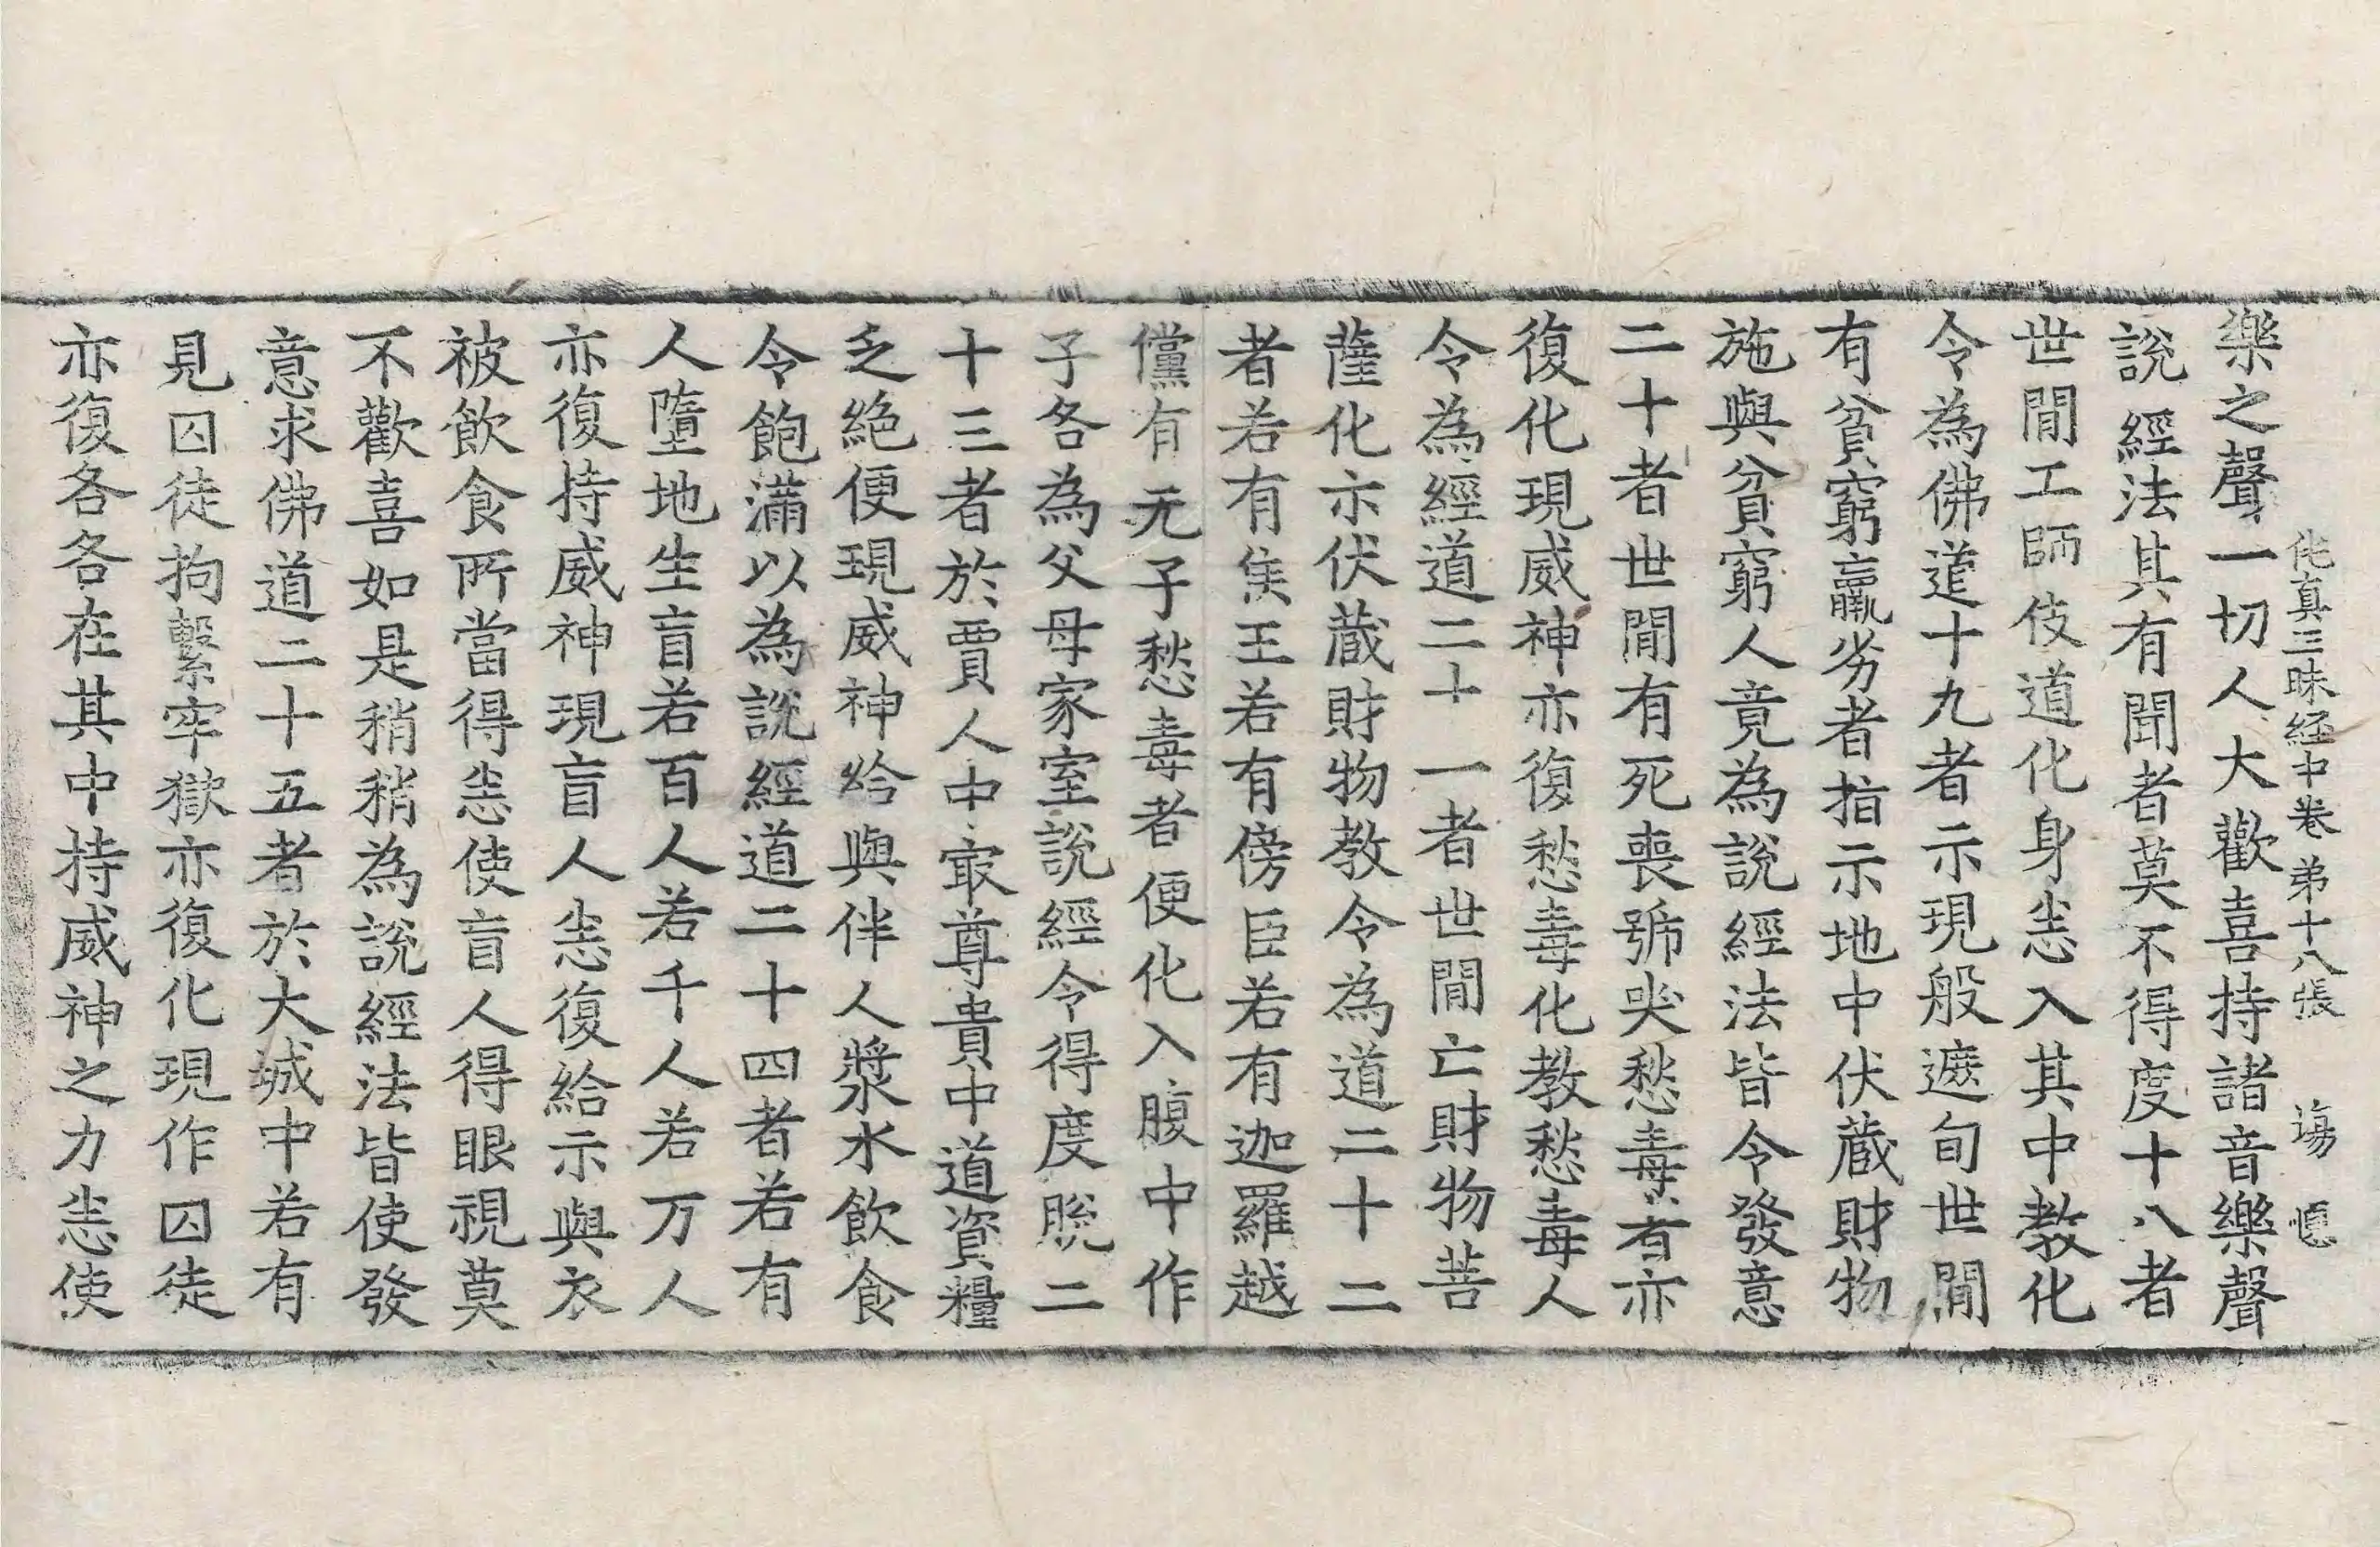 伅真三昧経中巻 弟十八張 塲 恖
樂之聲一切人大歡喜持諸音樂聲
說經法其有聞者莫不得度十八者
世閒工師伎道化身恙入其中教化
令為佛道十九者示現般遮旬世閒
有貧窮羸劣者指示地中伏蔵財物
施與貧窮人竟為說經法皆令發意
二十者世閒有死喪號哭愁毒者亦
復化現威神亦復愁毒化教愁毒人
令為經道二十一者世閒亡財物菩
薩化示伏蔵財物教令為道二十二
者若有隻王若有傍臣若有迦羅越
儻有无子愁毒者便化入腹中作
子各為父母家室說經令得度脫二
十三者於賈人中㝡尊貴中道資糧
乏絶便現威神給與伴人漿水飲食
令飽滿以為說經道二十四者若有
人墮地生盲若百人若千人若万人
亦復持威神現盲人恙復給示與衣
被飲食所當得恙使盲人得眼視莫
不歡喜如是稍稍為說經法皆使發
意求佛道二十五者於大城中若有
見囚徒拘繫牢獄亦復化現作囚徒
亦復各各在其中持威神之力恙使